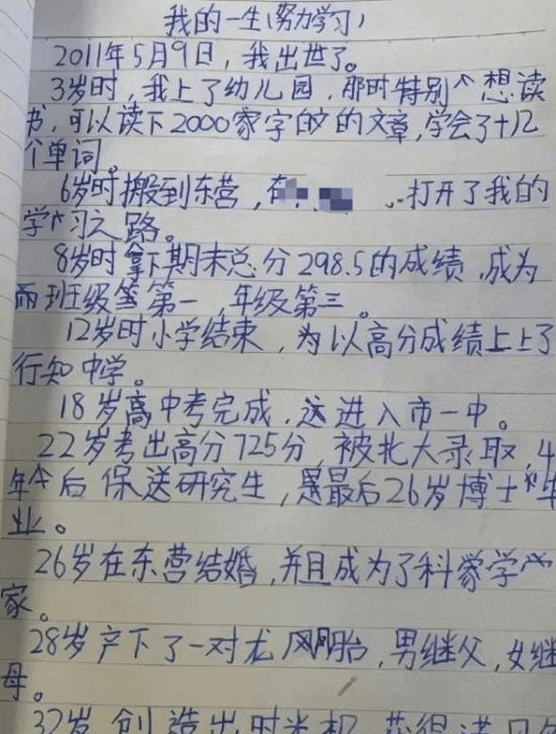 我的一生(努力学习)
2011年5月9日，我出世了。
3岁时，我上了幼儿园，那时特别想读
书，可以读下2000家字的的文章，学会了十几
个单词。
6岁时搬到东营，在 打开了我的
学习之路。
8岁时拿下期末总分298.5的成绩，成为
班级第一，年级第三。
12岁时小学结束，为以高分成绩上上了
行知中学。
18岁高中考完成，进入市一中。
22岁考出高分725分，被北大录取，4
年后保送研究生，最后26岁博士毕
业。
26岁在东营结婚，并且成为了科学
家。
28岁产下了一对龙凤胎，男继父，女继
母。
32岁创造出时光机，获得诺贝尔